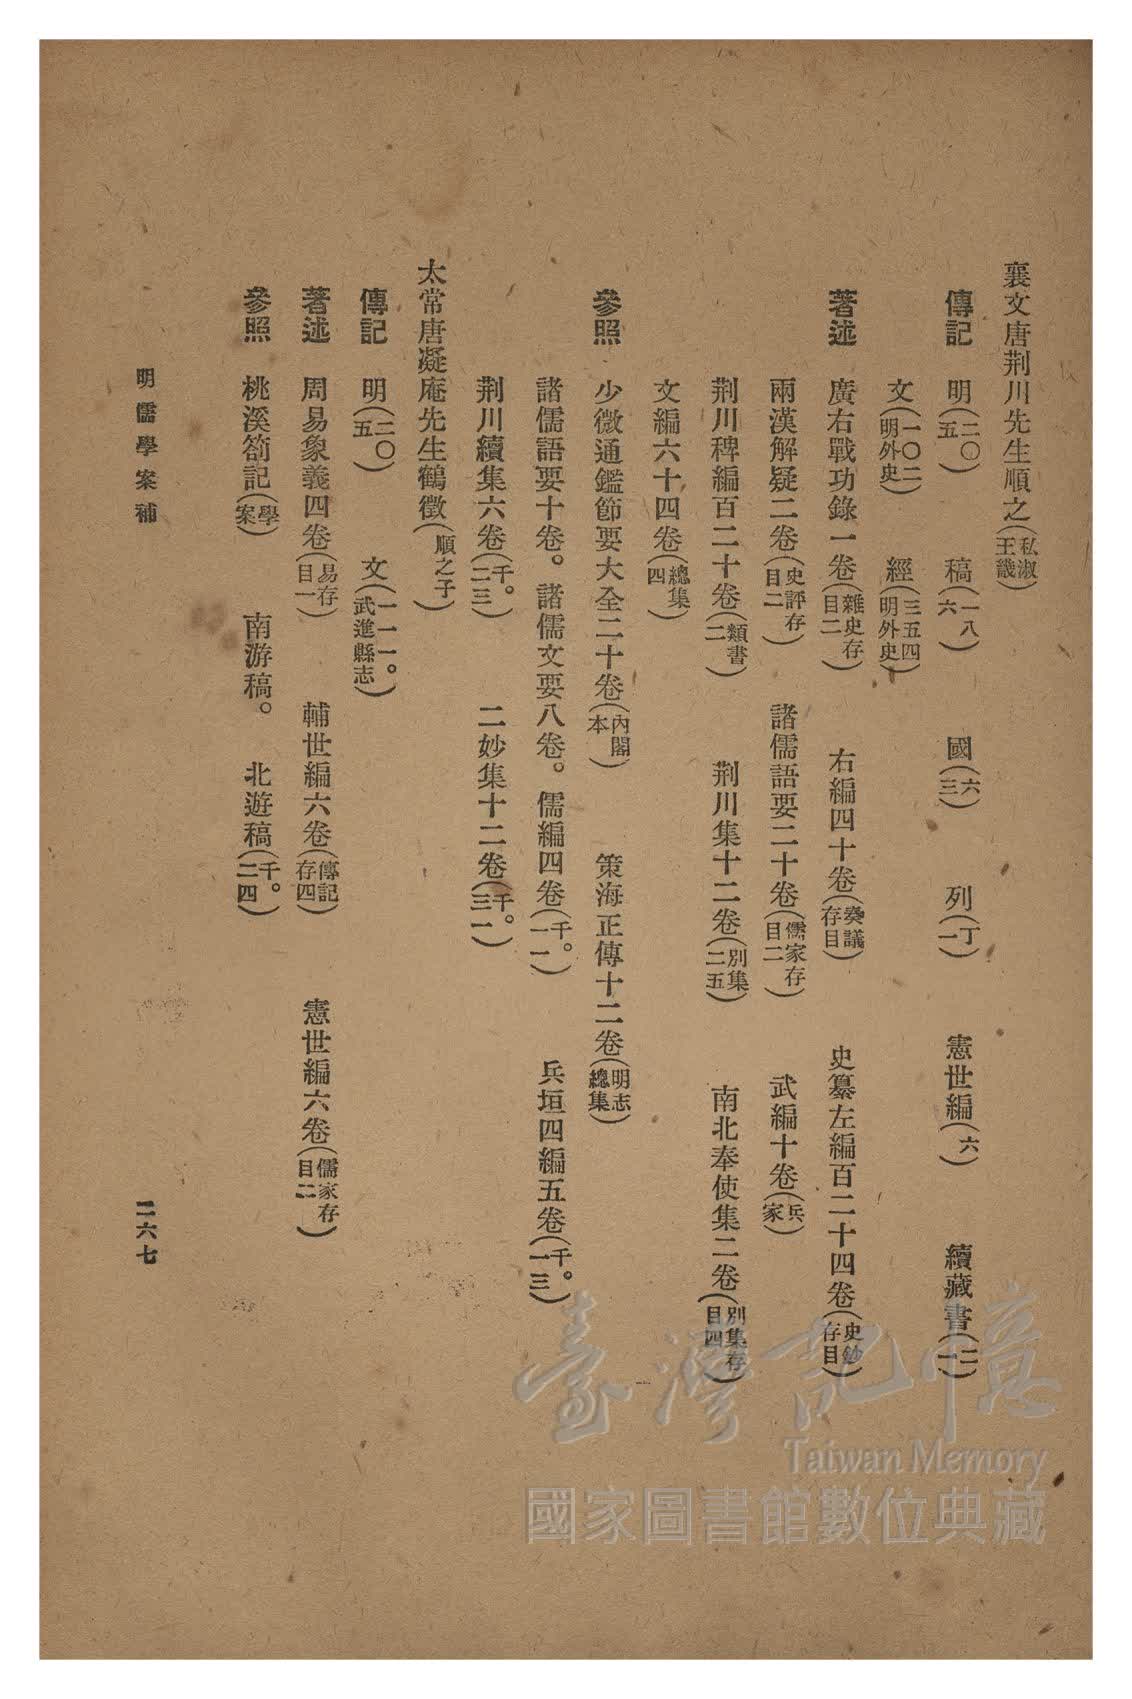 襄文唐荆川先生順之(私淑王畿)
傳記 明(二〇五) 稿(一八六) 國(六三) 列(丁一) 憲世編(六) 續藏書(二二)
文(一〇二明外史) 經(三五四明外史)
著述 廣右戰功錄一卷(雜史存目二) 右編四十卷(奏議存目) 史纂左編百二十四卷(史鈔存目)
兩漢解疑二卷(史評存目二) 諸儒語要二十卷(儒家存目二) 武編十卷(兵家)
荆川稗編百二十卷(類書二) 荆川集十二卷(別集二五) 南北奉使集二卷(別集存目四)
文編六十四卷(總集四)
參照 少微通鑑節要大全二十卷(內閣本) 策海正傳十二卷(明志總集)
諸儒語要十卷。諸儒文要八卷。儒編四卷(千。一一) 兵垣四編五卷(千。一三)
荆川續集六卷(千。二三) 二妙集十二卷(千。三一)
太常唐凝庵先生鶴徵(順之子)
傳記 明(二〇五) 文(一一一。武進縣志)
著述 周易象義四卷(易存目一) 輔世編六卷(傳記存四) 憲世編六卷(儒家存目二)
參照 桃溪箚記(學案) 南游稿。 北遊稿(千。二四)
明儒學案補
二六七
臺灣記憶
Taiwan Memory
國家圖書館數位典藏